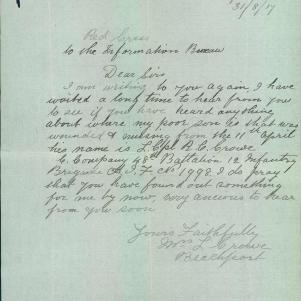 31/8/17
Red Cross
to the Information Bureau
Dear Sirs
I am writing to you again, I have
waited a long time to hear from you
to see if you have heard anything
about where my poor son is that was
wounded & missing from the 11th April
his name is L/Cpl R. C. Crowe
C. Company 48th Battalion 12 Infantry
Brigade A. I. F No 1998. I do pray
that you have found out something
for me by now, very anxious to hear
from you soon
Yours Faithfully
Mrs L Crowe
Beachport